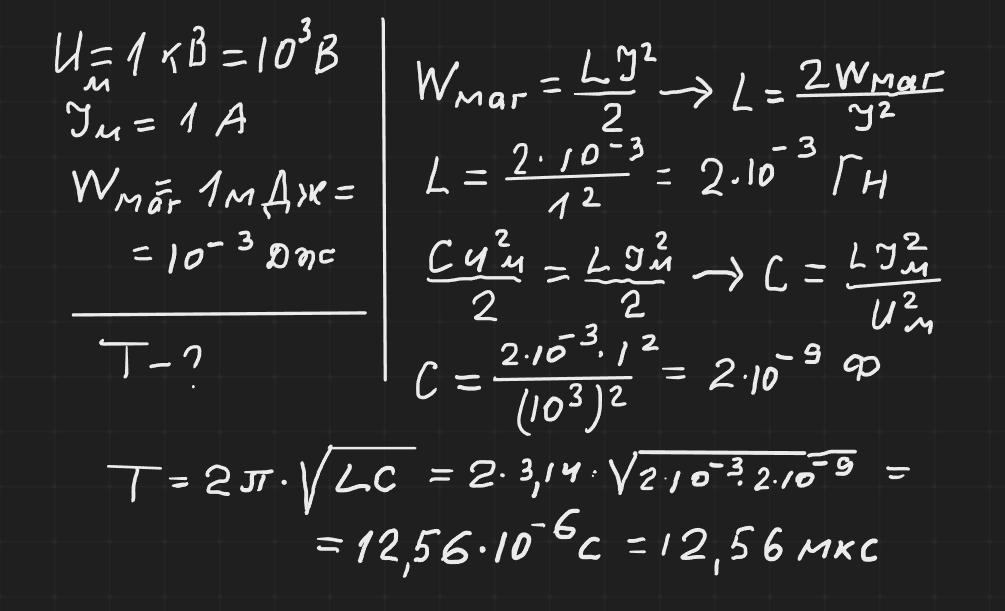 Uм = 1 кВ = 10³ В
Iм = 1 А
Wмаг = 1 мДж =
= 10⁻³ Дж
T - ?
Wмаг = LI²/2 → L = 2Wмаг/I²
L = 2·10⁻³/1² = 2·10⁻³ Гн
CUм²/2 = LIм²/2 → C = LIм²/Uм²
C = 2·10⁻³·1²/(10³)² = 2·10⁻⁹ Ф
T = 2π·√LC = 2·3,14·√2·10⁻³·2·10⁻⁹ =
= 12,56·10⁻⁶ с = 12,56 мкс